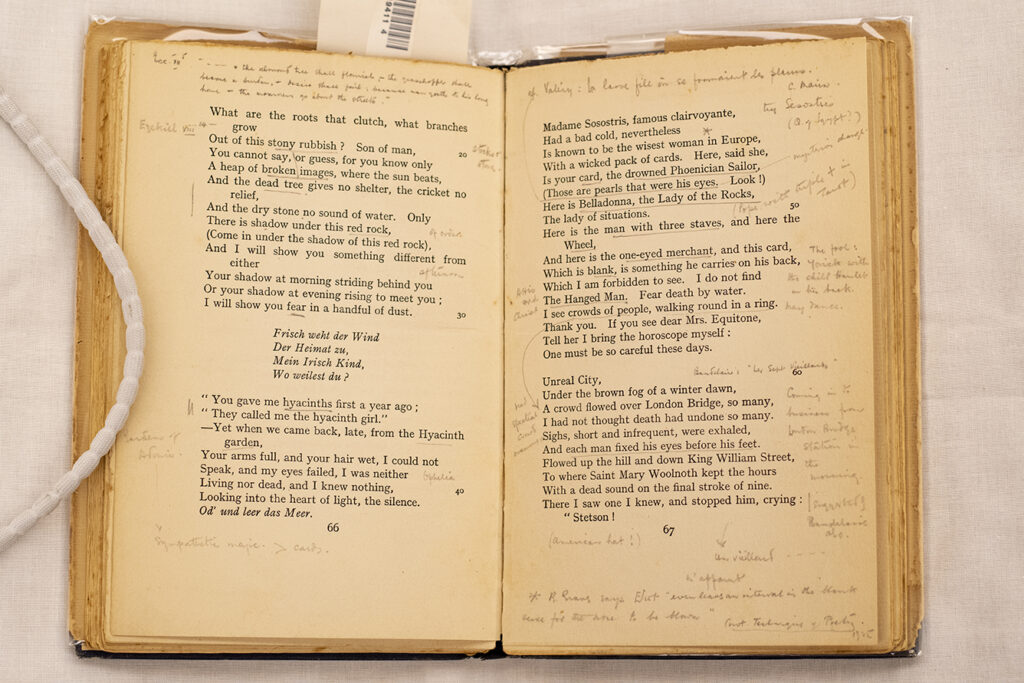 9411 4
Ecc. + the almond tree shall flourish, + the grasshopper shall
become a burden, + desire shall fail: because man goeth to his long
home + the mourners go about the streets
What are the roots that clutch, what branches
grow
Ezekiel VIII
Out of this stony rubbish ? Son of man, 20
You cannot say, or guess, for you know only
A heap of broken images, where the sun beats,
And the dead tree gives no shelter, the cricket no
relief,
And the dry stone no sound of water. Only
There is shadow under this red rock,
(Come in under the shadow of this red rock),
And I will show you something different from
either
Your shadow at morning striding behind you
Or your shadow at evening rising to meet you ;
I will show you fear in a handful of dust. 30
Frisch weht der Wind
Der Heimat zu,
Mein Irisch Kind,
Wo weilest du ?
“ You gave me hyacinths first a year ago ;
“ They called me the hyacinth girl.”
—Yet when we came back, late, from the Hyacinth
garden,
Gardens of
Adonis.
Your arms full, and your hair wet, I could not
Speak, and my eyes failed, I was neither Ophelia
Living nor dead, and I knew nothing, 40
Looking into the heart of light, the silence.
Od’ und leer das Meer.
66
Sympathetic magic. > cards.
cf. Valéry:
Madame Sosostris, famous clairvoyante,
Had a bad cold, nevertheless
Sesostris
(Q. of Egypt?)
Is known to be the wisest woman in Europe,
With a wicked pack of cards. Here, said she,
Is your card, the drowned Phoenician Sailor,
(Those are pearls that were his eyes. Look !)
Here is Belladonna, the Lady of the Rocks,
The lady of situations. 50
(Pope with triple + in
Tarot)
Here is the man with three staves, and here the
Wheel,
And here is the one-eyed merchant, and this card,
Which is blank, is something he carries on his back,
Which I am forbidden to see. I do not find
The Hanged Man. Fear death by water.
I see crowds of people, walking round in a ring.
Thank you. If you see dear Mrs. Equitone,
Tell her I bring the horoscope myself :
One must be so careful these days.
The fool:
Yorick with
the child Hamlet
on his back.
Baudelaire: "Les Sept Vieillards" 60
Unreal City,
Under the brown fog of a winter dawn,
A crowd flowed over London Bridge, so many,
I had not thought death had undone so many.
Sighs, short and infrequent, were exhaled,
And each man fixed his eyes before his feet.
Flowed up the hill and down King William Street,
To where Saint Mary Woolnoth kept the hours
With a dead sound on the final stroke of nine.
There I saw one I knew, and stopped him, crying :
“ Stetson !
Coming in to
business from
London Bridge
Station in
the
morning.
[suggested]
Baudelaire
also.
67
(American hat !)
un vieillard ----
m'apparut
* R. Graves says Eliot "even leaves an interval in the blank
verse for the nose to be blown"
Technique of Poetry